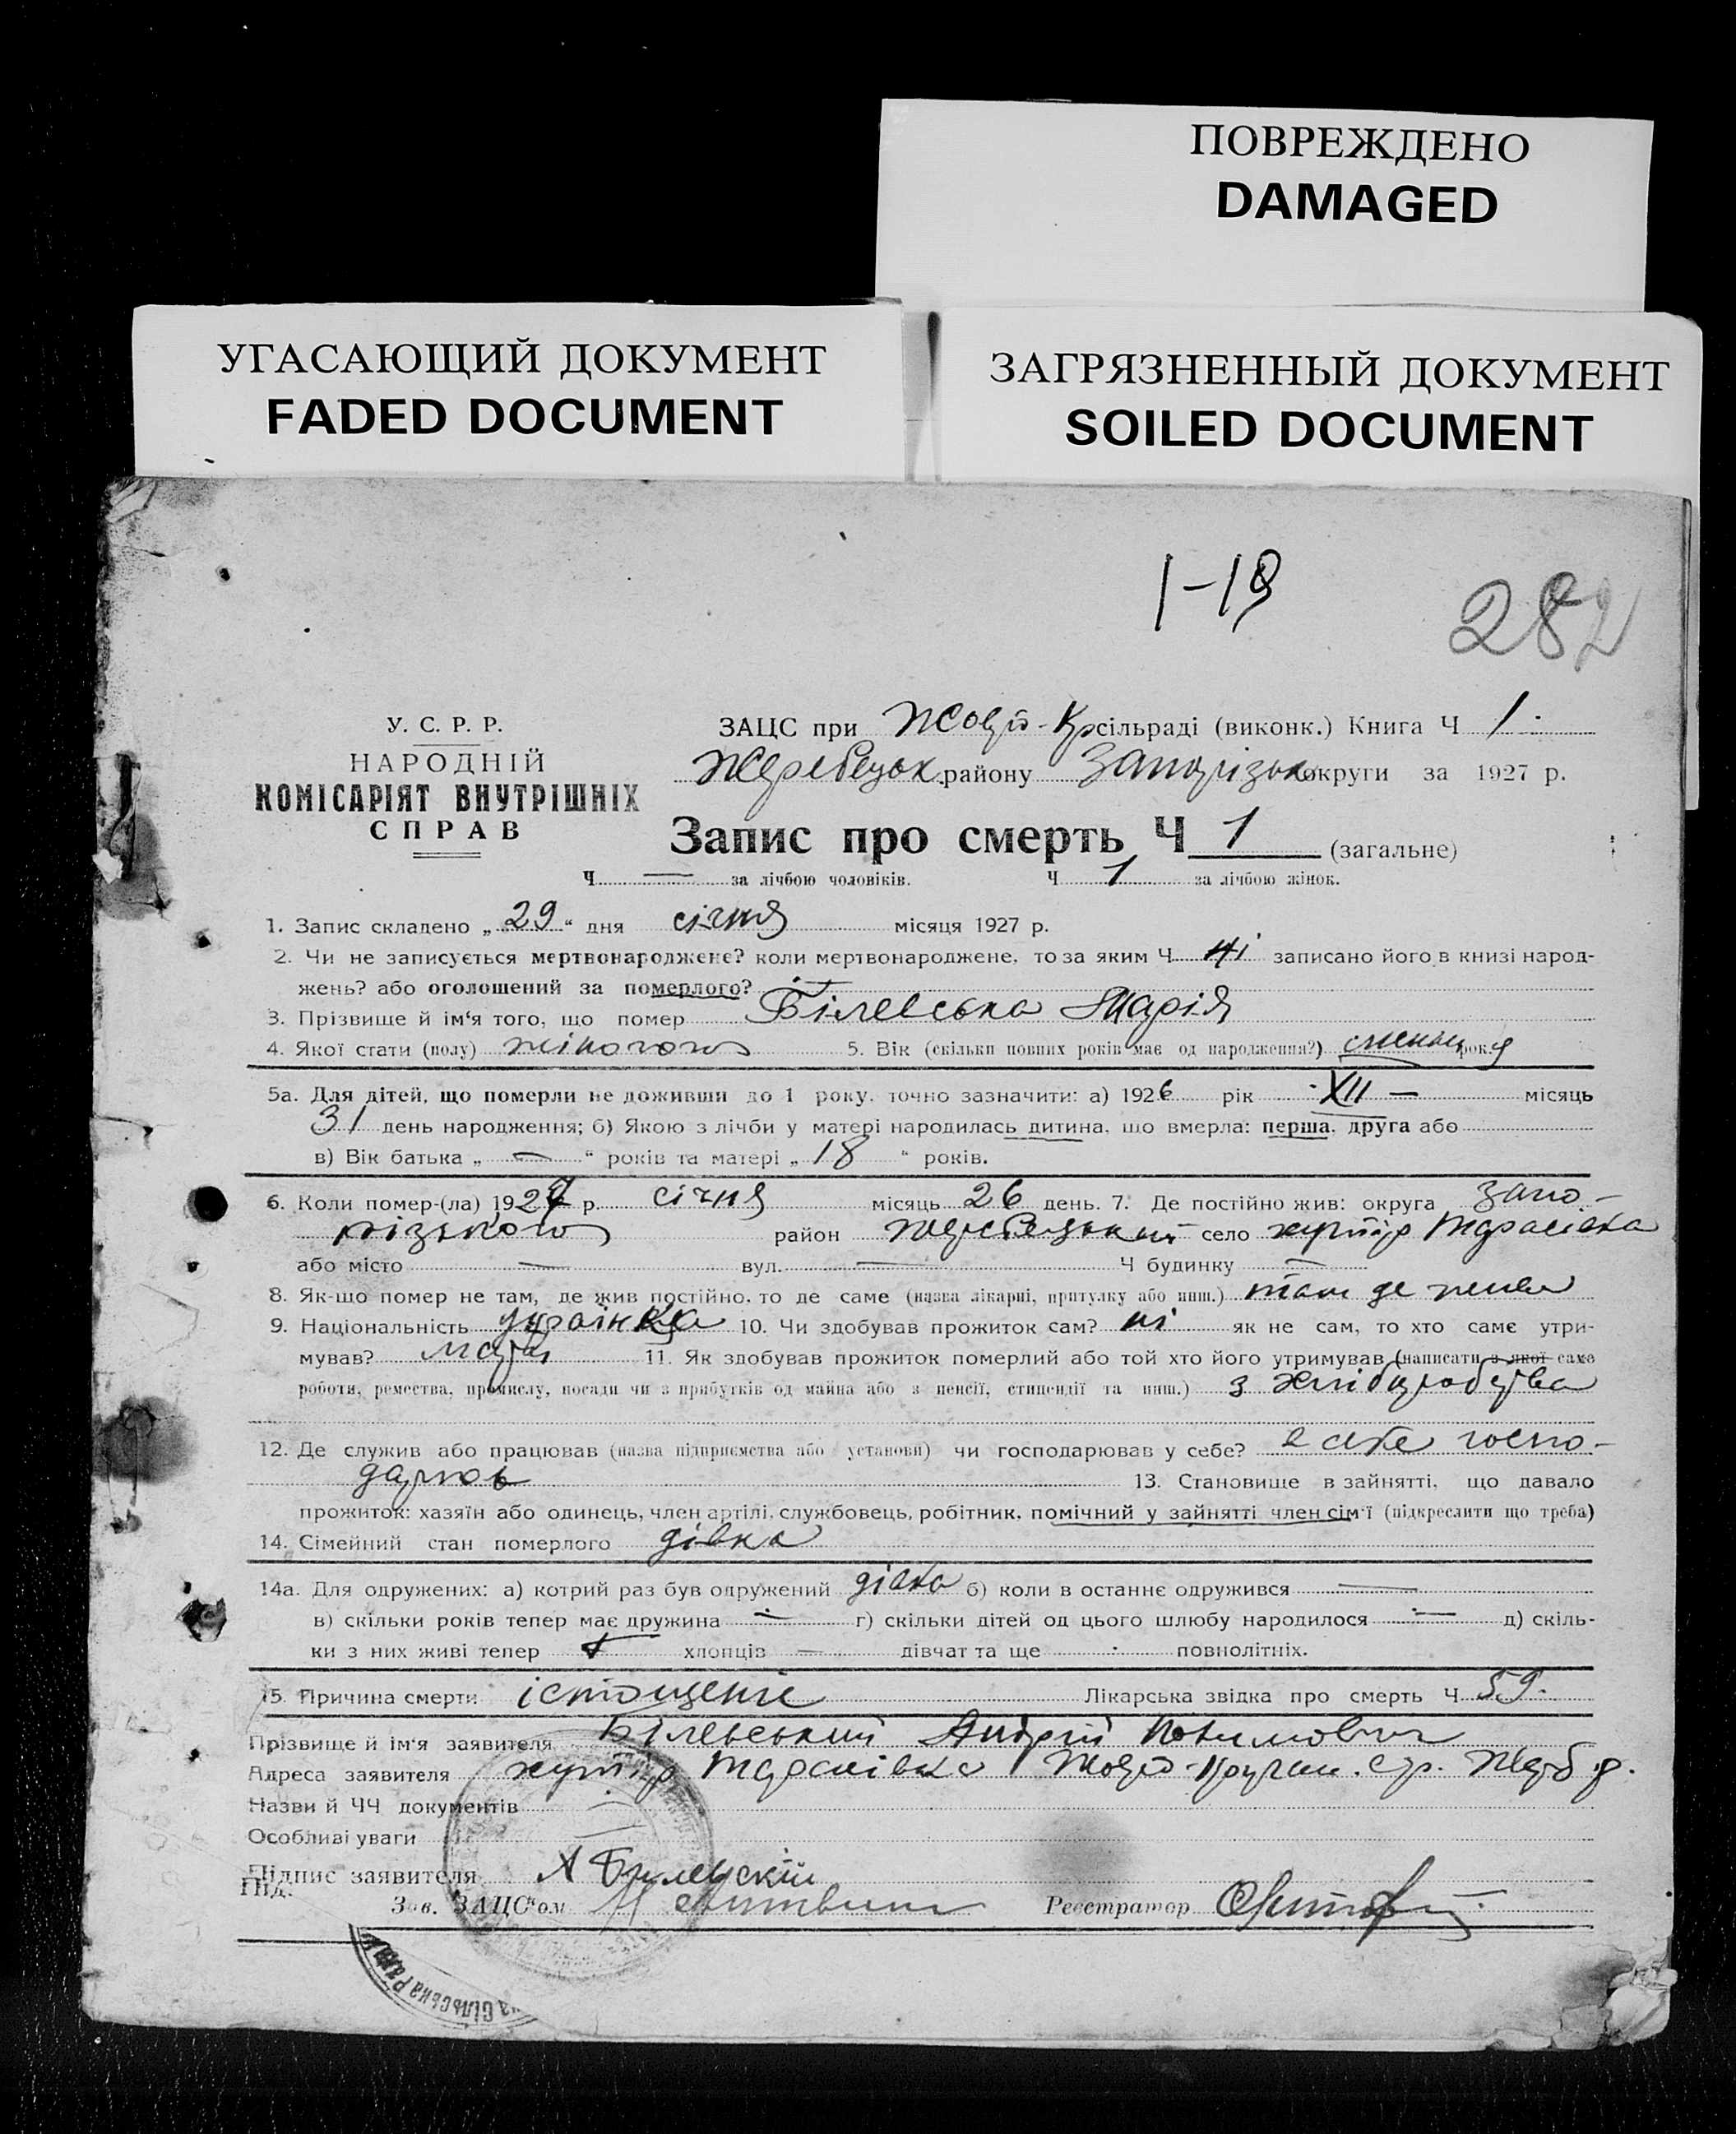 ПОВРЕЖДЕНО
DAMAGED
УГАСАЮЩИЙ ДОКУМЕНТ
FADED DOCUMENT
ЗАГРЯЗНЕННЫЙ ДОКУМЕНТ
SOILED DOCUMENT
1-19
282
У. С. Р. Р.
НАРОДНІЙ
КОМІСАРІЯТ ВНУТРІШНІХ
СПРАВ
ЗАЦС при Жовто-Кр сільраді (виконк.) Книга Ч 1
Жеребецьк району Запорізьк округи за 1927 р.
Запис про смерть Ч 1 (загальне)
Ч — за лічбою чоловіків. Ч 1 за лічбою жінок.
1. Запис складено „ 29 “ дня січня місяця 1927 р.
2. Чи не записується мертвонароджене? коли мертвонароджене, то за яким Ч ні записано його в книзі народ-
жень? або оголошений за померлого? —
3. Прізвище й ім‘я того, що помер Білевська Марія
4. Якої стати (полу) жіночого 5. Вік (скільки повних років має од народження?) рок.
5а. Для дітей, що померли не доживши до 1 року, точно зазначити: а) 1926 рік XII — місяць
31 день народження; б) Якою з лічби у матері народилась дитина, що вмерла: перша, друга або
в) Вік батька „ — “ років та матері „ 18 “ років.
6. Коли помер-(ла) 1927 р. січня місяць 26 день. 7. Де постійно жив: округа Запо-
різького район Жеребецький село хутір Тарасівка
або місто — вул. — Ч будинку —
8. Як-що помер не там, де жив постійно, то де саме (назва лікарні, притулку або инш.) там де жила
9. Національність українка 10. Чи здобував прожиток сам? ні як не сам, то хто саме утри-
мував? мати 11. Як здобував прожиток померлий або той хто його утримував (написати з якої саме
роботи, ремества, промислу, посади чи з прибутків од майна або з пенсії, стипендії та инш.) з хліборобства
12. Де служив або працював (назва підприємства або установи) чи господарював у себе? в себе госпо-
дарюв 13. Становище в зайнятті, що давало
прожиток: хазяїн або одинець, член артілі, службовець, робітник, помічний у зайнятті член сім‘ї (підкреслити що треба)
14. Сімейний стан померлого дівка
14а. Для одружених: а) котрий раз був одружений дівка б) коли в останнє одружився —
в) скільки років тепер має дружина — г) скільки дітей од цього шлюбу народилося — д) скіль-
ки з них живі тепер хлопців — дівчат та ще повнолітніх.
15. Причина смерти істощеніє Лікарська звідка про смерть Ч 59.
Прізвище й ім‘я заявителя Білевський Андрій
Адреса заявителя хутір Тарасівка Жовто- с.р. Жереб р.
Назви й ЧЧ документів —
Особливі уваги —
Підпис заявителя А Билевскій
Під.
Зав. ЗАЦС‘ом Литвин Реєстратор
Сільська Рада